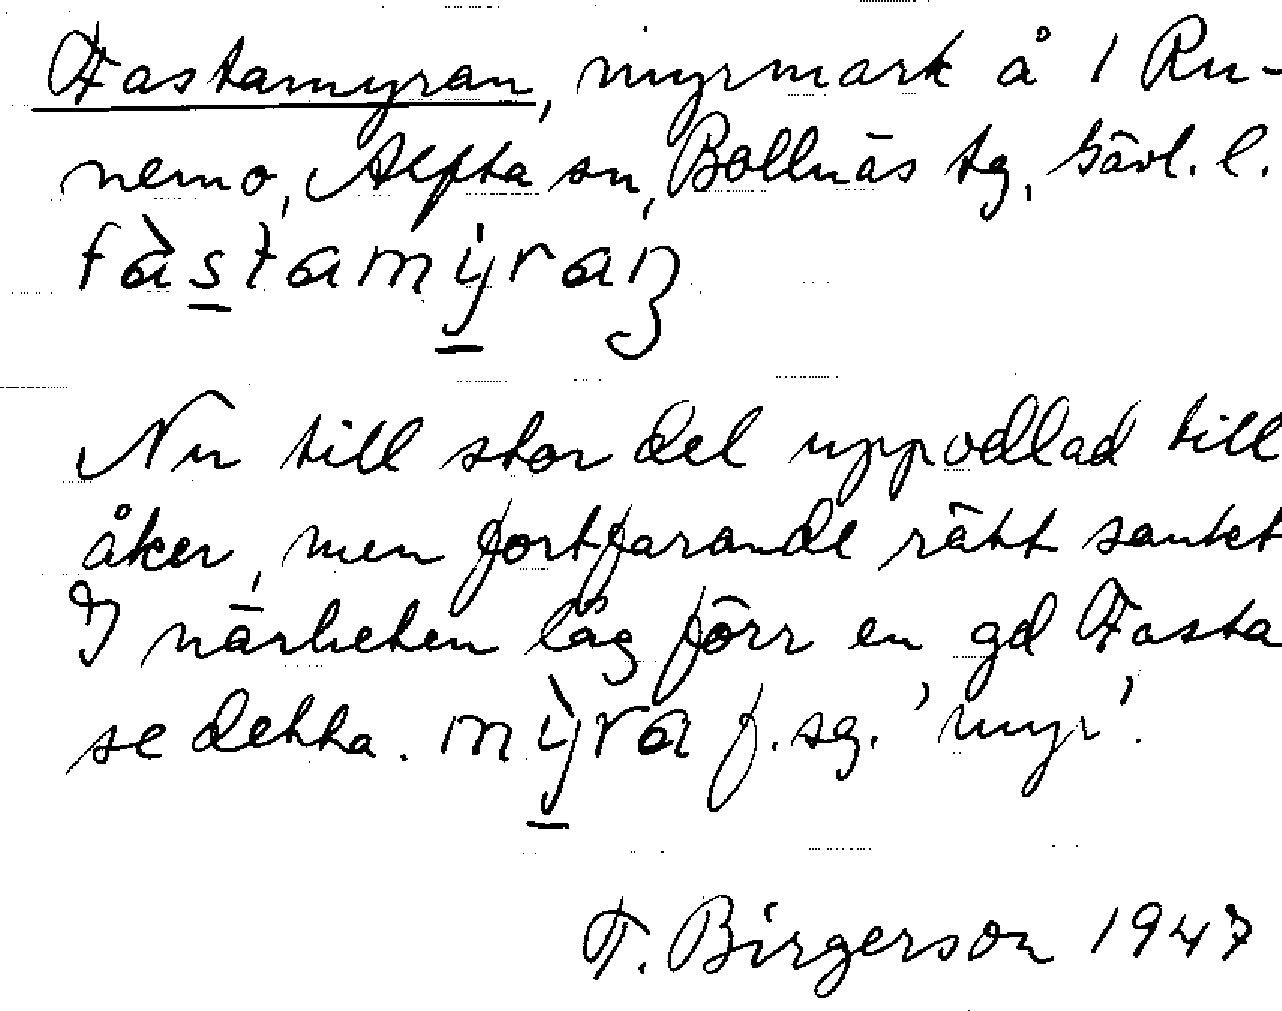 Fastamyran, myrmark å 1 Ru-
nemo, Alfta sn, Bollnäs tg, Gävl. l.
fàstamỳraꞑ
Nu till stor del uppodlad till
åker, men fortfarande rätt sankt
I närheten låg förr en gd Fasta
se detta. mỳra f. sg. 'myr'.
F. Birgerson 1947